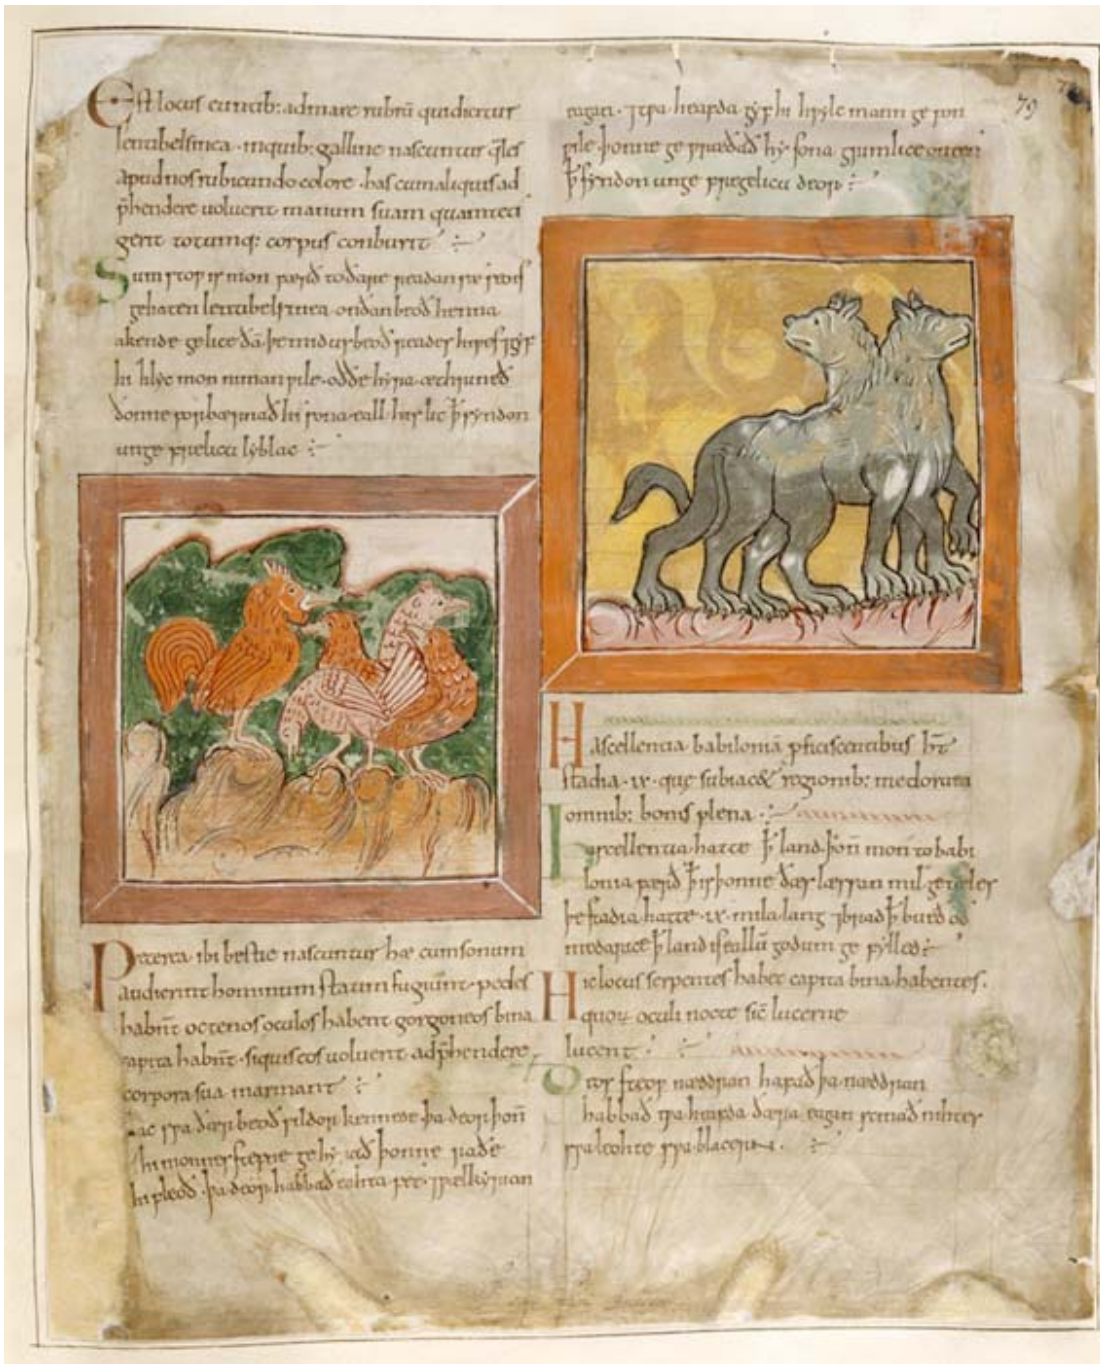 Est locus euntib: ad mare rubrū qui dicitur
lentibelsinea · in quib: galline nascuntur q̄les
apud nos rubicundo colore · has cum aliquis ad
p̄hendere uoluerit manum suam quam teti
gerit totumq; corpus conburit
Sum stoƿ is mon færð to ðare readan sæ seo is
gehaten lentibelsinea on ðan beoð henna
akende gelice ðā þe mid us beoð reades hiƿes ⁊ gyf
hi hƿylc mon niman ƿile · oððe hyra æthrineð
ðonne forbærnað hi sona eall his lic þ̄ syndon
ungefrelicu lyblac
Preterea ibi bestie nascuntur hæ cum sonum
audierint hominum statim fugiunt · pedes
habn̄t octenos oculos habent gorgoneos bina
capita habn̄t · siquis eos uoluerit adp̄hendere
corpora sua inarmant
Eac sƿa ðær beoð ƿildeor kennede þa deor þoñ
hi monnes stefne gehyrað þonne raðe
hi fleoð · þa deor habbað eahta fet · ⁊ ƿælkyrian
eagan · ⁊ tƿa heafda gyf hi hƿylc mann gefon
ƿile þonne ge hy sona grimlice
þ̄ syndon ungefregelicu deor
Hascellentia babiloniā pficiscentibus hn̄t
stadia · ix · que subiac& regionib: medorum
omnib: bonis plena
hatte þ̄ land þoñ mon to babi
lonia færð þ̄ is þonne ðæs læssan milgeteles
þe stadia hatte · ix · mila lang ⁊ brad þ̄ buð oð
meda rice þ̄ land is eallū godum gefylled
Hic locus serpentes habet capita bina habentes ·
quoꝝ oculi nocte sic̄ lucerne
lucent
stoƿ næddran hafað þa næddran
habbað tƿa heafda ðæra eagan scinað nihtes
sƿa leohte sƿa blacern ·
79